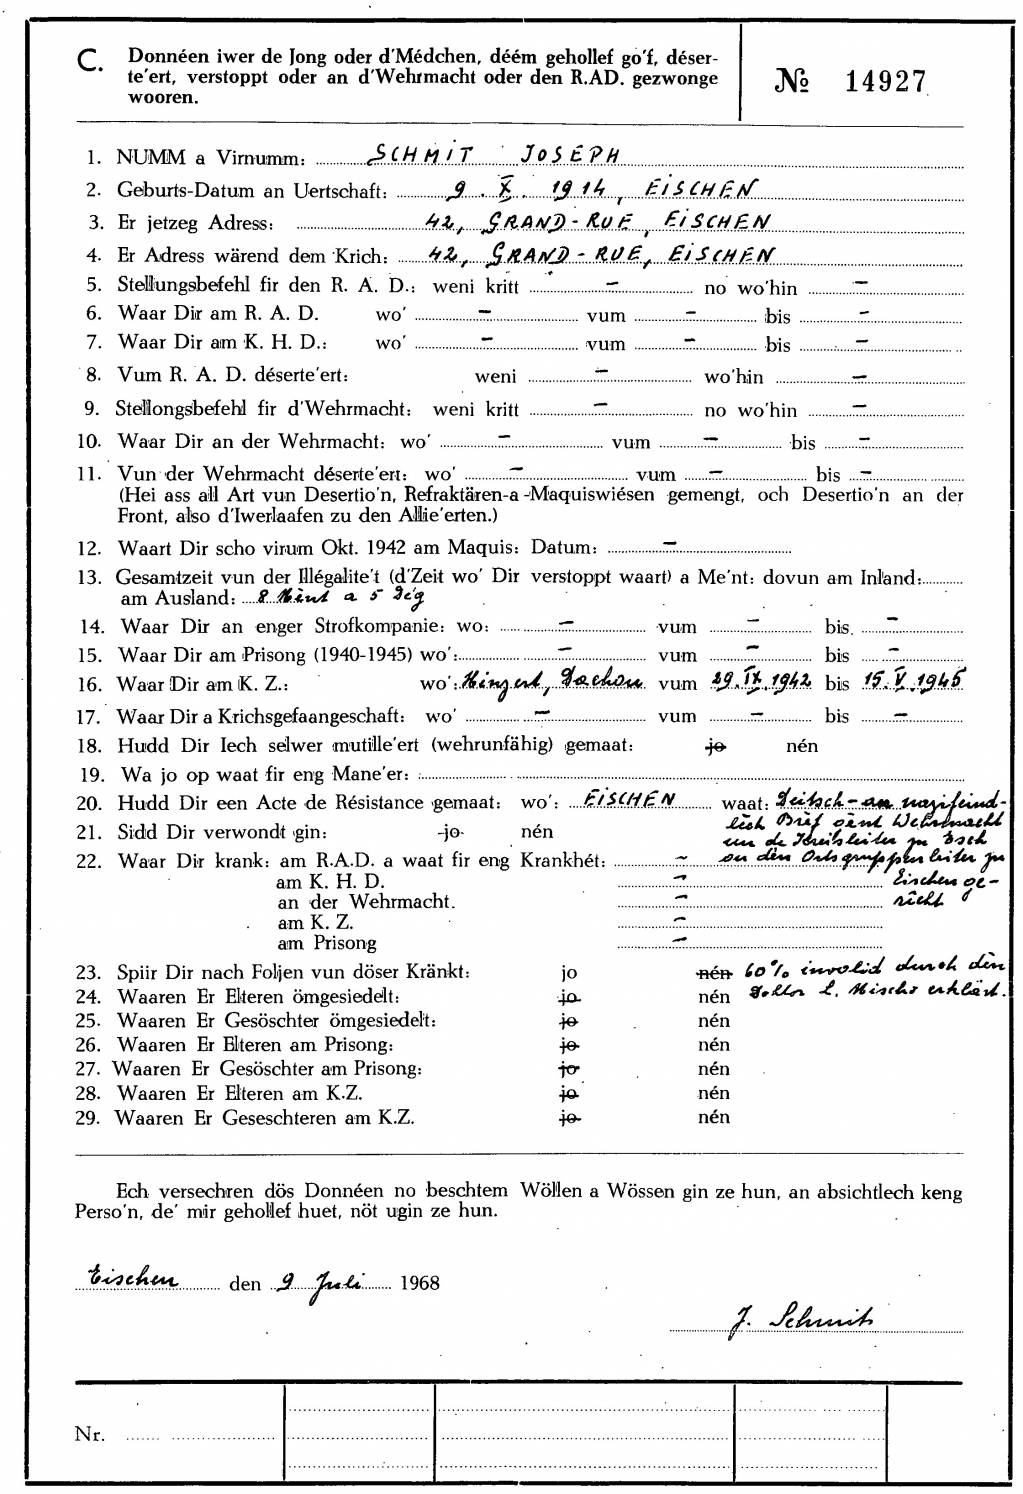 C. Donnéen iwer de Jong oder d'Médchen, déém gehollef go'f, déser-
te'ert, verstoppt oder an d'Wehrmacht oder den R.AD. gezwonge
wooren.
№ 14927
1. NUMM a Virnumm: SCHMIT JOSEPH
2. Geburts-Datum an Uertschaft: 9. X. 1914, EISCHEN
3. Er jetzeg Adress: 42, GRAND-RUE, EISCHEN
4. Er Adress wärend dem Krich: 42, GRAND-RUE, EISCHEN
5. Stellungsbefehl fir den R. A. D.: weni kritt – no wo'hin –
6. Waar Dir am R. A. D. wo' – vum – bis –
7. Waar Dir am K. H. D.: wo' – vum – bis –
8. Vum R. A. D. déserte'ert: weni – wo'hin –
9. Stellongsbefehl fir d'Wehrmacht: weni kritt – no wo'hin –
10. Waar Dir an der Wehrmacht: wo' – vum – bis –
11. Vun der Wehrmacht déserte'ert: wo' – vum – bis –
(Hei ass all Art vun Desertio'n, Refraktären-a-Maquiswiésen gemengt, och Desertio'n an der
Front, also d'Iwerlaafen zu den Allie'erten.)
12. Waart Dir scho virum Okt. 1942 am Maquis: Datum: –
13. Gesamtzeit vun der Illégalite't (d'Zeit wo' Dir verstoppt waart) a Me'nt: dovun am Inland:
am Ausland: 8 Mént a 5 Deg
14. Waar Dir an enger Strofkompanie: wo: – vum – bis. –
15. Waar Dir am Prisong (1940-1945) wo': – vum – bis –
16. Waar Dir am K. Z.: wo': Hinzert, Dachau vum 29. IX. 1942 bis 15. V. 1945
17. Waar Dir a Krichsgefaangeschaft: wo' – vum – bis –
18. Hudd Dir Iech selwer mutille'ert (wehrunfähig) gemaat: jo nén
19. Wa jo op waat fir eng Mane'er:
20. Hudd Dir een Acte de Résistance gemaat: wo': EISCHEN waat: Deitsch-an nazifeind-
lech Brief un de Kreisleiter zu Esch
21. Sidd Dir verwondt gin: jo nén
22. Waar Dir krank: am R.A.D. a waat fir eng Krankhét: – an den Ortsgruppenleiter zu
am K. H. D. – Eischen ge-
an der Wehrmacht. – richt
am K. Z. –
am Prisong –
23. Spiir Dir nach Foljen vun döser Kränkt: jo nén 60% invalid durch den
24. Waaren Er Elteren ömgesiedelt: jo nén Dokter erklärt.
25. Waaren Er Gesöschter ömgesiedelt: jo nén
26. Waaren Er Elteren am Prisong: jo nén
27. Waaren Er Gesöschter am Prisong: jo nén
28. Waaren Er Elteren am K.Z. jo nén
29. Waaren Er Geseschteren am K.Z. jo nén
Ech versechren dös Donnéen no beschtem Wöllen a Wössen gin ze hun, an absichtlech keng
Perso'n, de' mir gehollef huet, nöt ugin ze hun.
Eischen den 9 Juli 1968
J. Schmit
Nr.